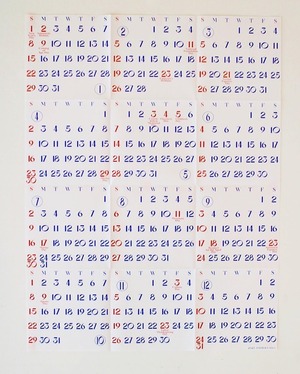 S M T W T F S
1 2 3 4 5 6 7
8 9 10 11 12 13 14
15 16 17 18 19 20 21
22 23 24 25 26 27 28
29 30 31 1
S M T W T F S
2 1 2 3 4
5 6 7 8 9 10 11
12 13 14 15 16 17 18
19 20 21 22 23 24 25
26 27 28
S M T W T F S
3 1 2 3 4
5 6 7 8 9 10 11
12 13 14 15 16 17 18
19 20 21 22 23 24 25
26 27 28 29 30 31
S M T W T F S
4 1
2 3 4 5 6 7 8
9 10 11 12 13 14 15
16 17 18 19 20 21 22
23 24 25 26 27 28 29
30
S M T W T F S
1 2 3 4 5 6
7 8 9 10 11 12 13
14 15 16 17 18 19 20
21 22 23 24 25 26 27
28 29 30 31 5
S M T W T F S
6 1 2 3
4 5 6 7 8 9 10
11 12 13 14 15 16 17
18 19 20 21 22 23 24
25 26 27 28 29 30
S M T W T F S
7 1
2 3 4 5 6 7 8
9 10 11 12 13 14 15
16 17 18 19 20 21 22
23 24 25 26 27 28 29
30 31
S M T W T F S
8 1 2 3 4 5
6 7 8 9 10 11 12
13 14 15 16 17 18 19
20 21 22 23 24 25 26
27 28 29 30 31
S M T W T F S
9 1 2
3 4 5 6 7 8 9
10 11 12 13 14 15 16
17 18 19 20 21 22 23
24 25 26 27 28 29 30
S M T W T F S
1 2 3 4 5 6 7
8 9 10 11 12 13 14
15 16 17 18 19 20 21
22 23 24 25 26 27 28
29 30 31 10
S M T W T F S
11 1 2 3 4
5 6 7 8 9 10 11
12 13 14 15 16 17 18
19 20 21 22 23 24 25
26 27 28 29 30
S M T W T F S
12 1 2
3 4 5 6 7 8 9
10 11 12 13 14 15 16
17 18 19 20 21 22 23
24 25 26 27 28 29 30
31